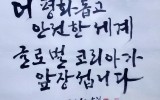 더 평화롭고
안전한 세계
글로벌 코리아가
앞장섭니다